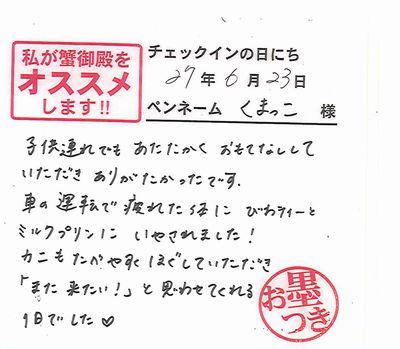 私が蟹御殿を
オススメ
します!!
チェックインの日にち
27年6月23日
ペンネーム くまっこ 様
子供連れでも あたたかく おもてなしして
いただき ありがたかったです.
車の運転で 疲れた体に びわティーと
ミルクプリンに いやされました!
カニも たべやすく ほぐしていただき
「また 来たい!」と 思わせてくれる
1日でした♡
お墨つき